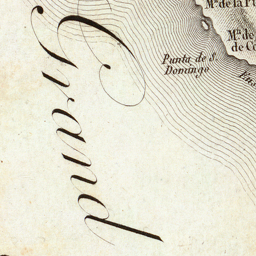 Mª. de la
Mª. de
de Co
Punta de S.
Domingo
Ens
Grand